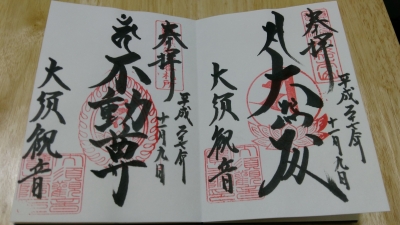 奉拝
平成二十七年
十一月九日
大悲殿
大須観音
奉拝
平成二十七年
十一月九日
不動尊
大須観音